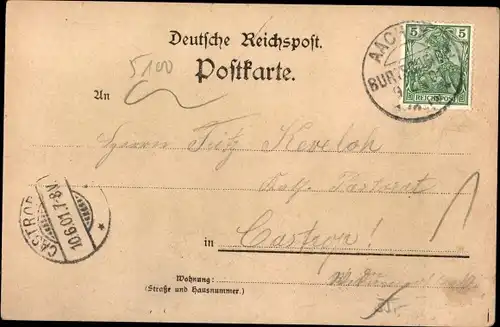 Deutsche Reichspost.
Postkarte.
5100
An
AACHEN
BURTSCHEID
5 5
REICHSPOST
Herrn Fritz
Kath. Pastorat
in Castrop!
CASTROP
10.6.01.7-8V.
Wohnung:
(Straße und Hausnummer.)